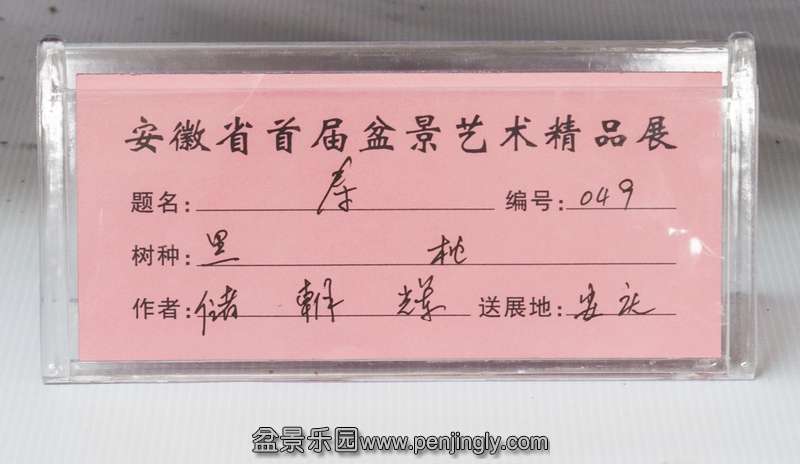 安徽省首届盆景艺术精品展
题名: 寿 编号: 049
树种: 黑 桃
作者: 储朝辉 送展地: 安庆
盆景乐园www.penjingly.com